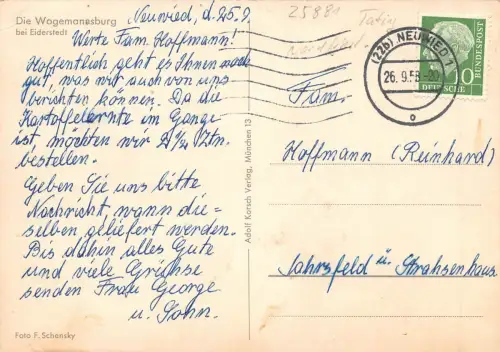 Die Wogemannsburg
bei Eiderstedt
Neuwied, d. 25.9.
Werte Fam. Hoffmann!
Hoffentlich geht es Ihnen noch
gut, was wir auch von uns
berichten können. Da die
Kartoffelernte im Gange
ist, möchten wir Ztn.
bestellen.
Geben Sie uns bitte
Nachricht, wann die=
selben geliefert werden.
Bis dahin alles Gute
und viele Grüsse
senden Frau George
u. Sohn.
Foto F. Schensky
Adolf Korsch Verlag, München 13
25881
(22b) NEUWIED 1
26.9.58-20
o
10
DEUTSCHE
BUNDESPOST
Fam.
Hoffmann (Reinhard)
Jahrsfeld ü. Strahsenhaus